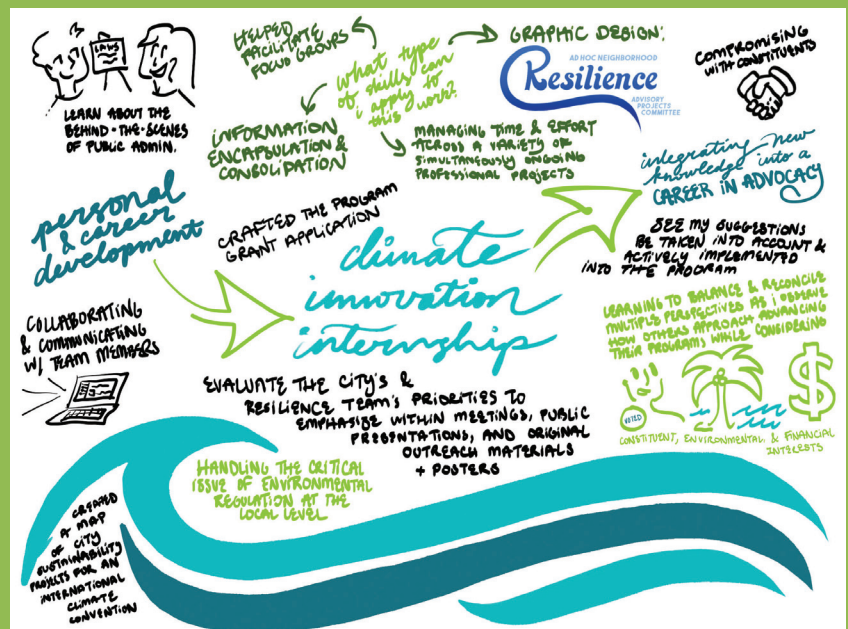 LAWS
LEARN ABOUT THE
BEHIND-THE-SCENES
OF PUBLIC ADMIN.
HELPED
FACILITATE
FOCUS GROUPS
what type
of skills can
i apply to
this work?
GRAPHIC DESIGN:
AD HOC NEIGHBORHOOD
Resilience
ADVISORY
PROJECTS
COMMITTEE
COMPROMISING
WITH CONSTITUENTS
INFORMATION
ENCAPSULATION &
CONSOLIDATION
MANAGING TIME & EFFORT
ACROSS A VARIETY OF
SIMULTANEOUSLY ONGOING
PROFESSIONAL PROJECTS
integrating new
knowledge into a
CAREER IN ADVOCACY
personal
& career
development
CRAFTED THE PROGRAM
GRANT APPLICATION
SEE MY SUGGESTIONS
BE TAKEN INTO ACCOUNT &
ACTIVELY IMPLEMENTED
INTO THE PROGRAM
climate
innovation
internship
COLLABORATING
& COMMUNICATING
W/ TEAM MEMBERS
LEARNING TO BALANCE & RECONCILE
MULTIPLE PERSPECTIVES AS I OBSERVE
HOW OTHERS APPROACH ADVANCING
THEIR PROGRAMS WHILE CONSIDERING
VOTED
$
CONSTITUENT, ENVIRONMENTAL, & FINANCIAL
INTERESTS
EVALUATE THE CITY'S &
RESILIENCE TEAM'S PRIORITIES TO
EMPHASIZE WITHIN MEETINGS, PUBLIC
PRESENTATIONS, AND ORIGINAL
OUTREACH MATERIALS
+ POSTERS
HANDLING THE CRITICAL
ISSUE OF ENVIRONMENTAL
REGULATION AT THE
LOCAL LEVEL
CREATED
A MAP
OF CITY
SUSTAINABILITY
PROJECTS FOR AN
INTERNATIONAL
CLIMATE
CONVENTION